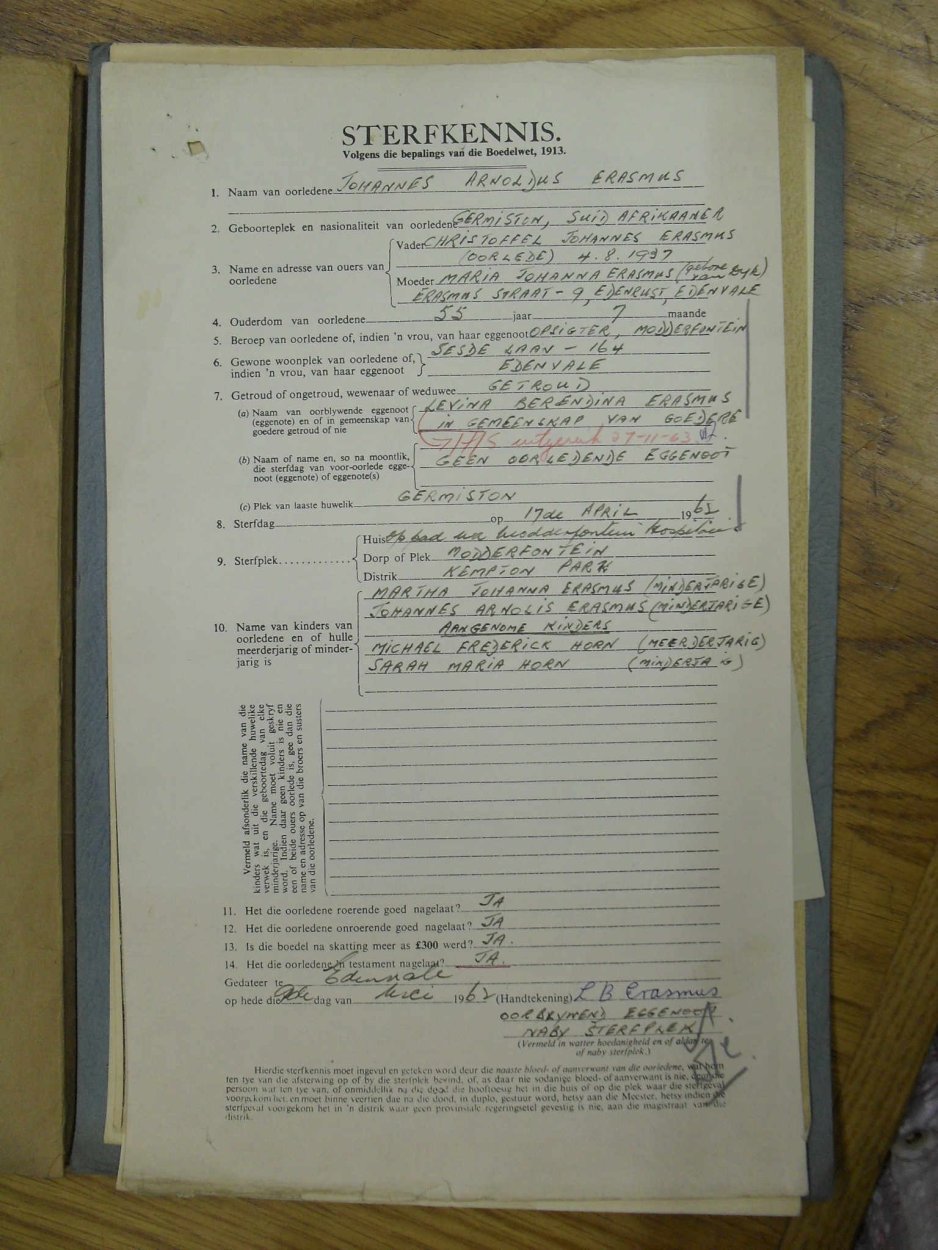 STERFKENNIS.
Volgens die bepalings van die Boedelwet, 1913.
1. Naam van oorledene JOHANNES ARNOLDUS ERASMUS
2. Geboorteplek en nasionaliteit van oorledene GERMISTON, SUID AFRIKAANER
3. Name en adresse van ouers van oorledene
Vader CHRISTOFFEL JOHANNES ERASMUS
(OORLEDE) 4.8.1937
Moeder MARIA JOHANNA ERASMUS (gebore van Dyk)
ERASMUS STRAAT - 9, EDENRUST, EDENVALE
4. Ouderdom van oorledene 55 jaar 7 maande
5. Beroep van oorledene of, indien 'n vrou, van haar eggenoot OPSIGTER, MODDERFONTEIN
6. Gewone woonplek van oorledene of, SESDE LAAN - 164
indien 'n vrou, van haar eggenoot EDENVALE
7. Getroud of ongetroud, wewenaar of weduwee GETROUD
(a) Naam van oorblywende eggenoot LEVINA BERENDINA ERASMUS
(eggenote) en of in gemeenskap van IN GEMEENSKAP VAN GOEDERE
goedere getroud of nie
uitgereik 27-11-63
(b) Naam of name en, so na moontlik, GEEN OORLEDENDE EGGENOOT
die sterfdag van voor-oorlede egge-
noot (eggenote) of eggenote(s)
(c) Plek van laaste huwelik GERMISTON
8. Sterfdag op 17de APRIL 1962
9. Sterfplek
Huis Op pad na Modderfontein Hospitaal
Dorp of Plek MODDERFONTEIN
Distrik KEMPTON PARK
10. Name van kinders van
oorledene en of hulle
meerderjarig of minder-
jarig is
MARTHA JOHANNA ERASMUS (MINDERJARIGE)
JOHANNES ARNOLIS ERASMUS (MINDERJARIGE)
AANGENOME KINDERS
MICHAEL FREDERICK HORN (MEERDERJARIG)
SARAH MARIA HORN (MINDERJA G)
Vermeld afsonderlik die name van die
kinders wat uit die verskillende huwelike
verwek is, en die geboortedag van elke
minderjarige. Name moet voluit geskryf
word. Indien daar geen kinders is nie en
een of beide ouers oorlede is, gee dan die
name en adresse op van die broers en susters
van die oorledene.
11. Het die oorledene roerende goed nagelaat? JA
12. Het die oorledene onroerende goed nagelaat? JA
13. Is die boedel na skatting meer as £300 werd? JA.
14. Het die oorledene 'n testament nagelaat? JA.
Gedateer te Edenvale
op hede die dag van Mei 1962 (Handtekening) L B Erasmus
OORBLYWEND EGGENOOT
NABY STERFPLEK
(Vermeld in watter hoedanigheid en of aldan te
of naby sterfplek.)
Hierdie sterfkennis moet ingevul en geteken word deur die naaste bloed- of aanverwant van die oorledene, wat hom
ten tye van die afsterwing op of by die sterfplek bevind, of, as daar nie sodanige bloed- of aanverwant is nie, deur die
persoon wat ten tye van, of onmiddellik na die dood die hooftoesig het in die huis of op die plek waar die sterfgeval
voorgekom het, en moet binne veertien dae na die dood, in duplo, gestuur word, hetsy aan die Meester, hetsy indien die
sterfgeval voorgekom het in 'n distrik waar geen provinsiale regeringsetel gevestig is nie, aan die magistraat van die
distrik.